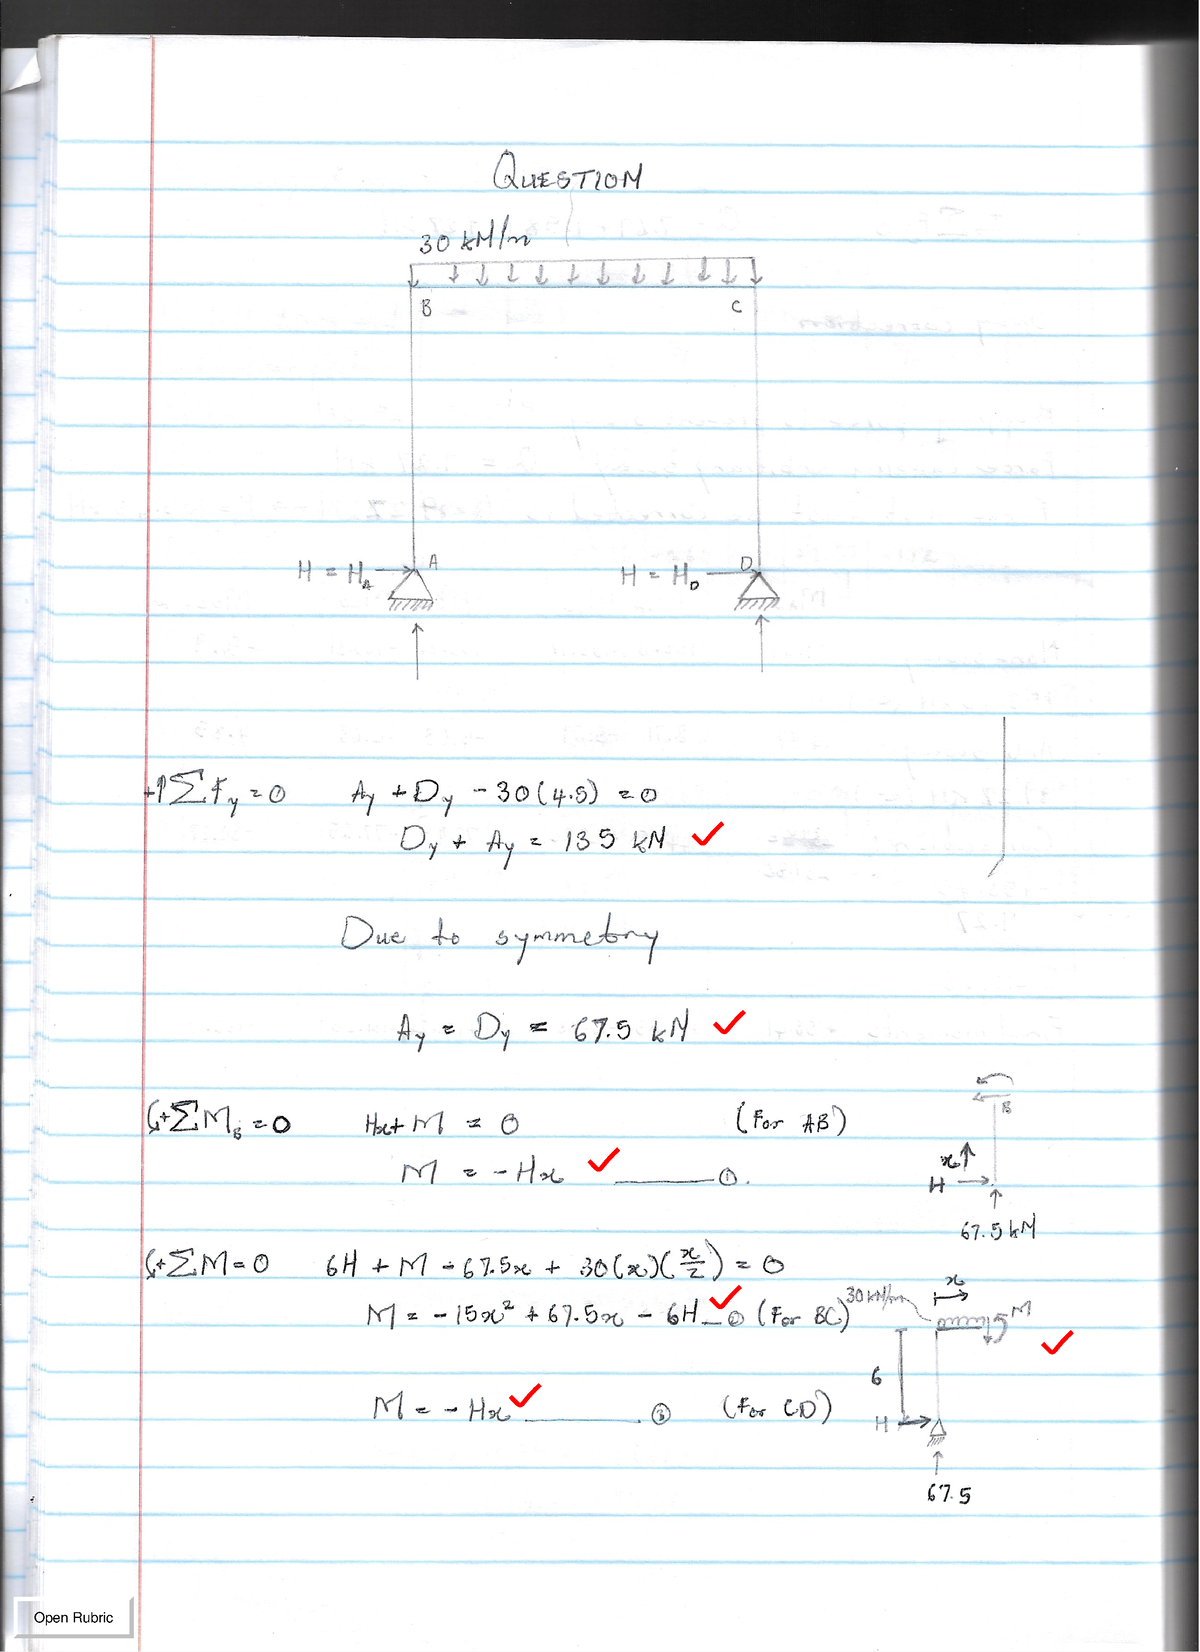 QUESTION
30 kN/m
B C
H = H_A A H = H_D D
+↑ΣFy = 0 Ay + Dy - 30(4.5) = 0
Dy + Ay = 135 kN ✓
Due to symmetry
Ay = Dy = 67.5 kN ✓
↺+ΣM_B = 0 Hx + M = 0 (For AB)
B
M = - Hx ✓ ①.
x↑
H
67.5 kN
↺+ΣM = 0 6H + M - 67.5x + 30(x)(x/2) = 0
M = - 15x² + 67.5x - 6H ✓ ② (For BC)
30 kN/m x M ✓
6
M = - Hx ✓ ③ (For CD)
H
67.5
Open Rubric